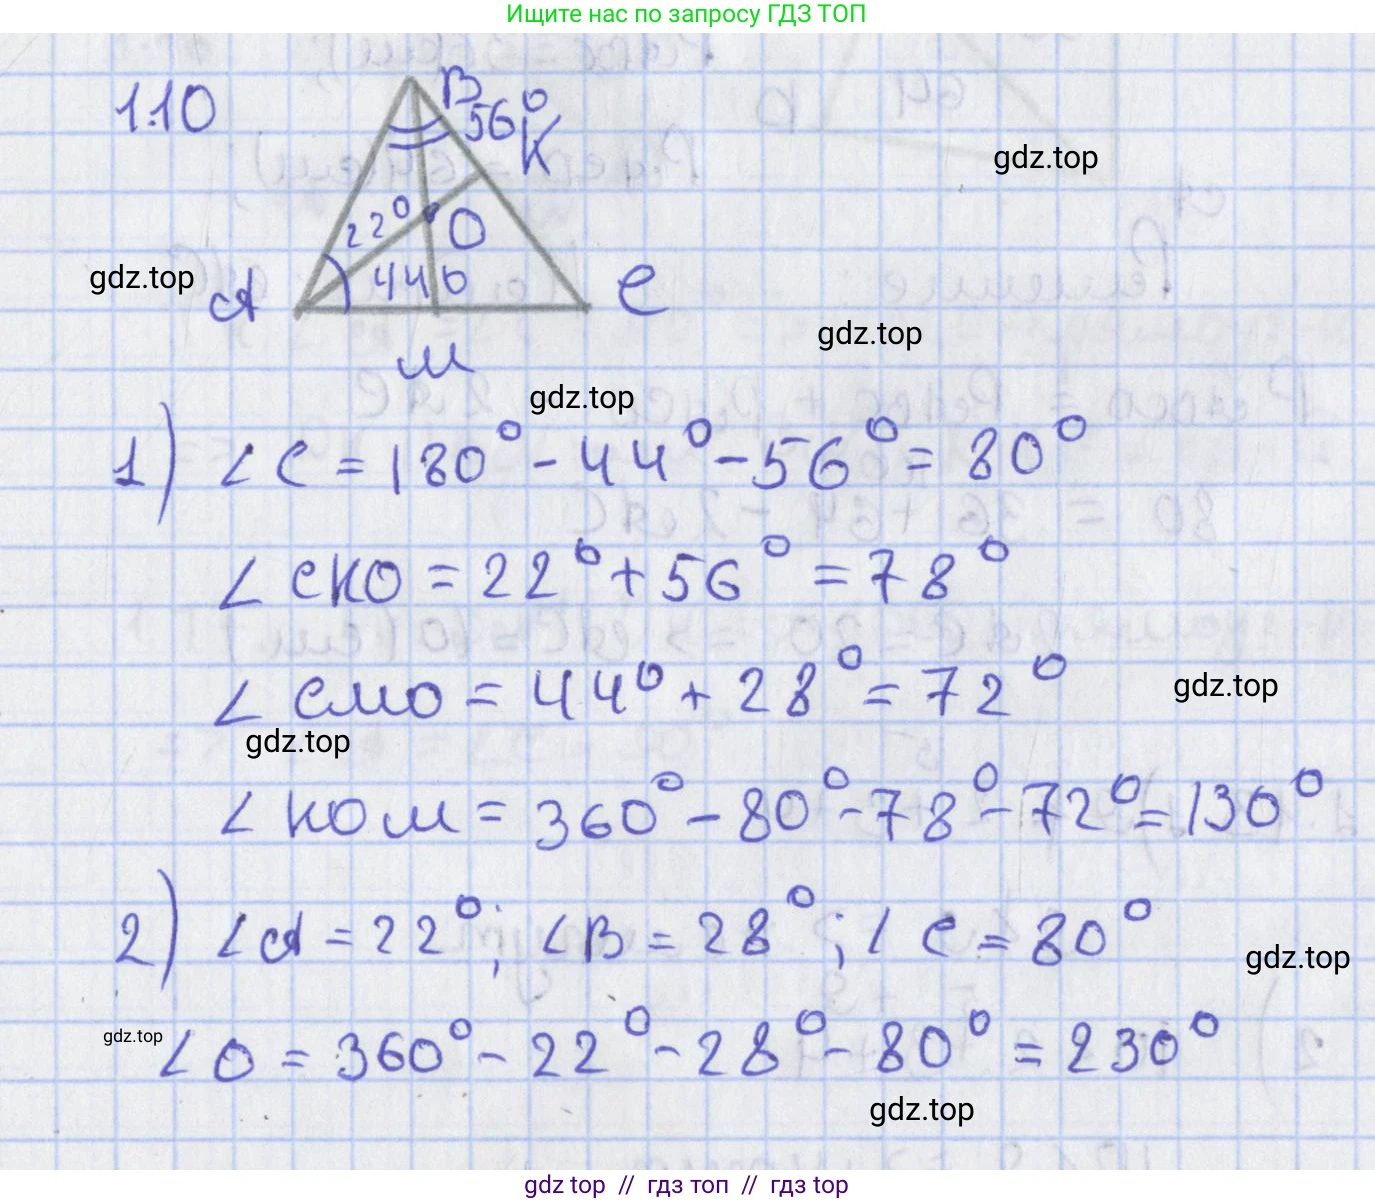 Ищите нас по запросу ГДЗ ТОП
1.10
B
56°
K
gdz.top
22°
O
gdz.top
A
44°
C
gdz.top
M
gdz.top
1) ∠C = 180° - 44° - 56° = 80°
∠CKO = 22° + 56° = 78°
∠CMO = 44° + 28° = 72°
gdz.top
gdz.top
∠KOM = 360° - 80° - 78° - 72° = 130°
2) ∠A = 22°; ∠B = 28°; ∠C = 80°
gdz.top
gdz.top
∠O = 360° - 22° - 28° - 80° = 230°
gdz.top
gdz top // гдз топ // гдз top